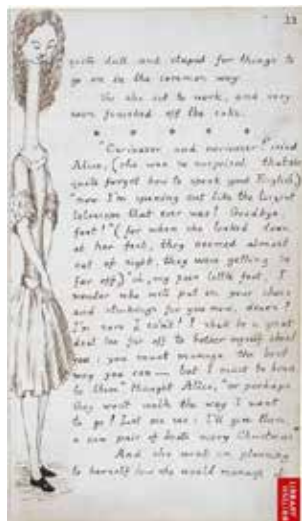 11
quite dull and stupid for things to
go on in the common way.
So she set to work, and very
soon finished off the cake.
* * * * * *
"Curiouser and curiouser!" cried
Alice, (she was so surprised that she
quite forgot how to speak good English)
"now I'm opening out like the largest
telescope that ever was! Goodbye,
feet!" (for when she looked down
at her feet, they seemed almost
out of sight, they were getting so
far off,) "oh, my poor little feet, I
wonder who will put on your shoes
and stockings for you now, dears?
I'm sure I can't! I shall be a great
deal too far off to bother myself about
you: you must manage the best
way you can — but I must be kind
to them," thought Alice, "or perhaps
they won't walk the way I want
to go! Let me see: I'll give them
a new pair of boots every Christmas."
And she went on planning
to herself how she would manage it
LIBRARY